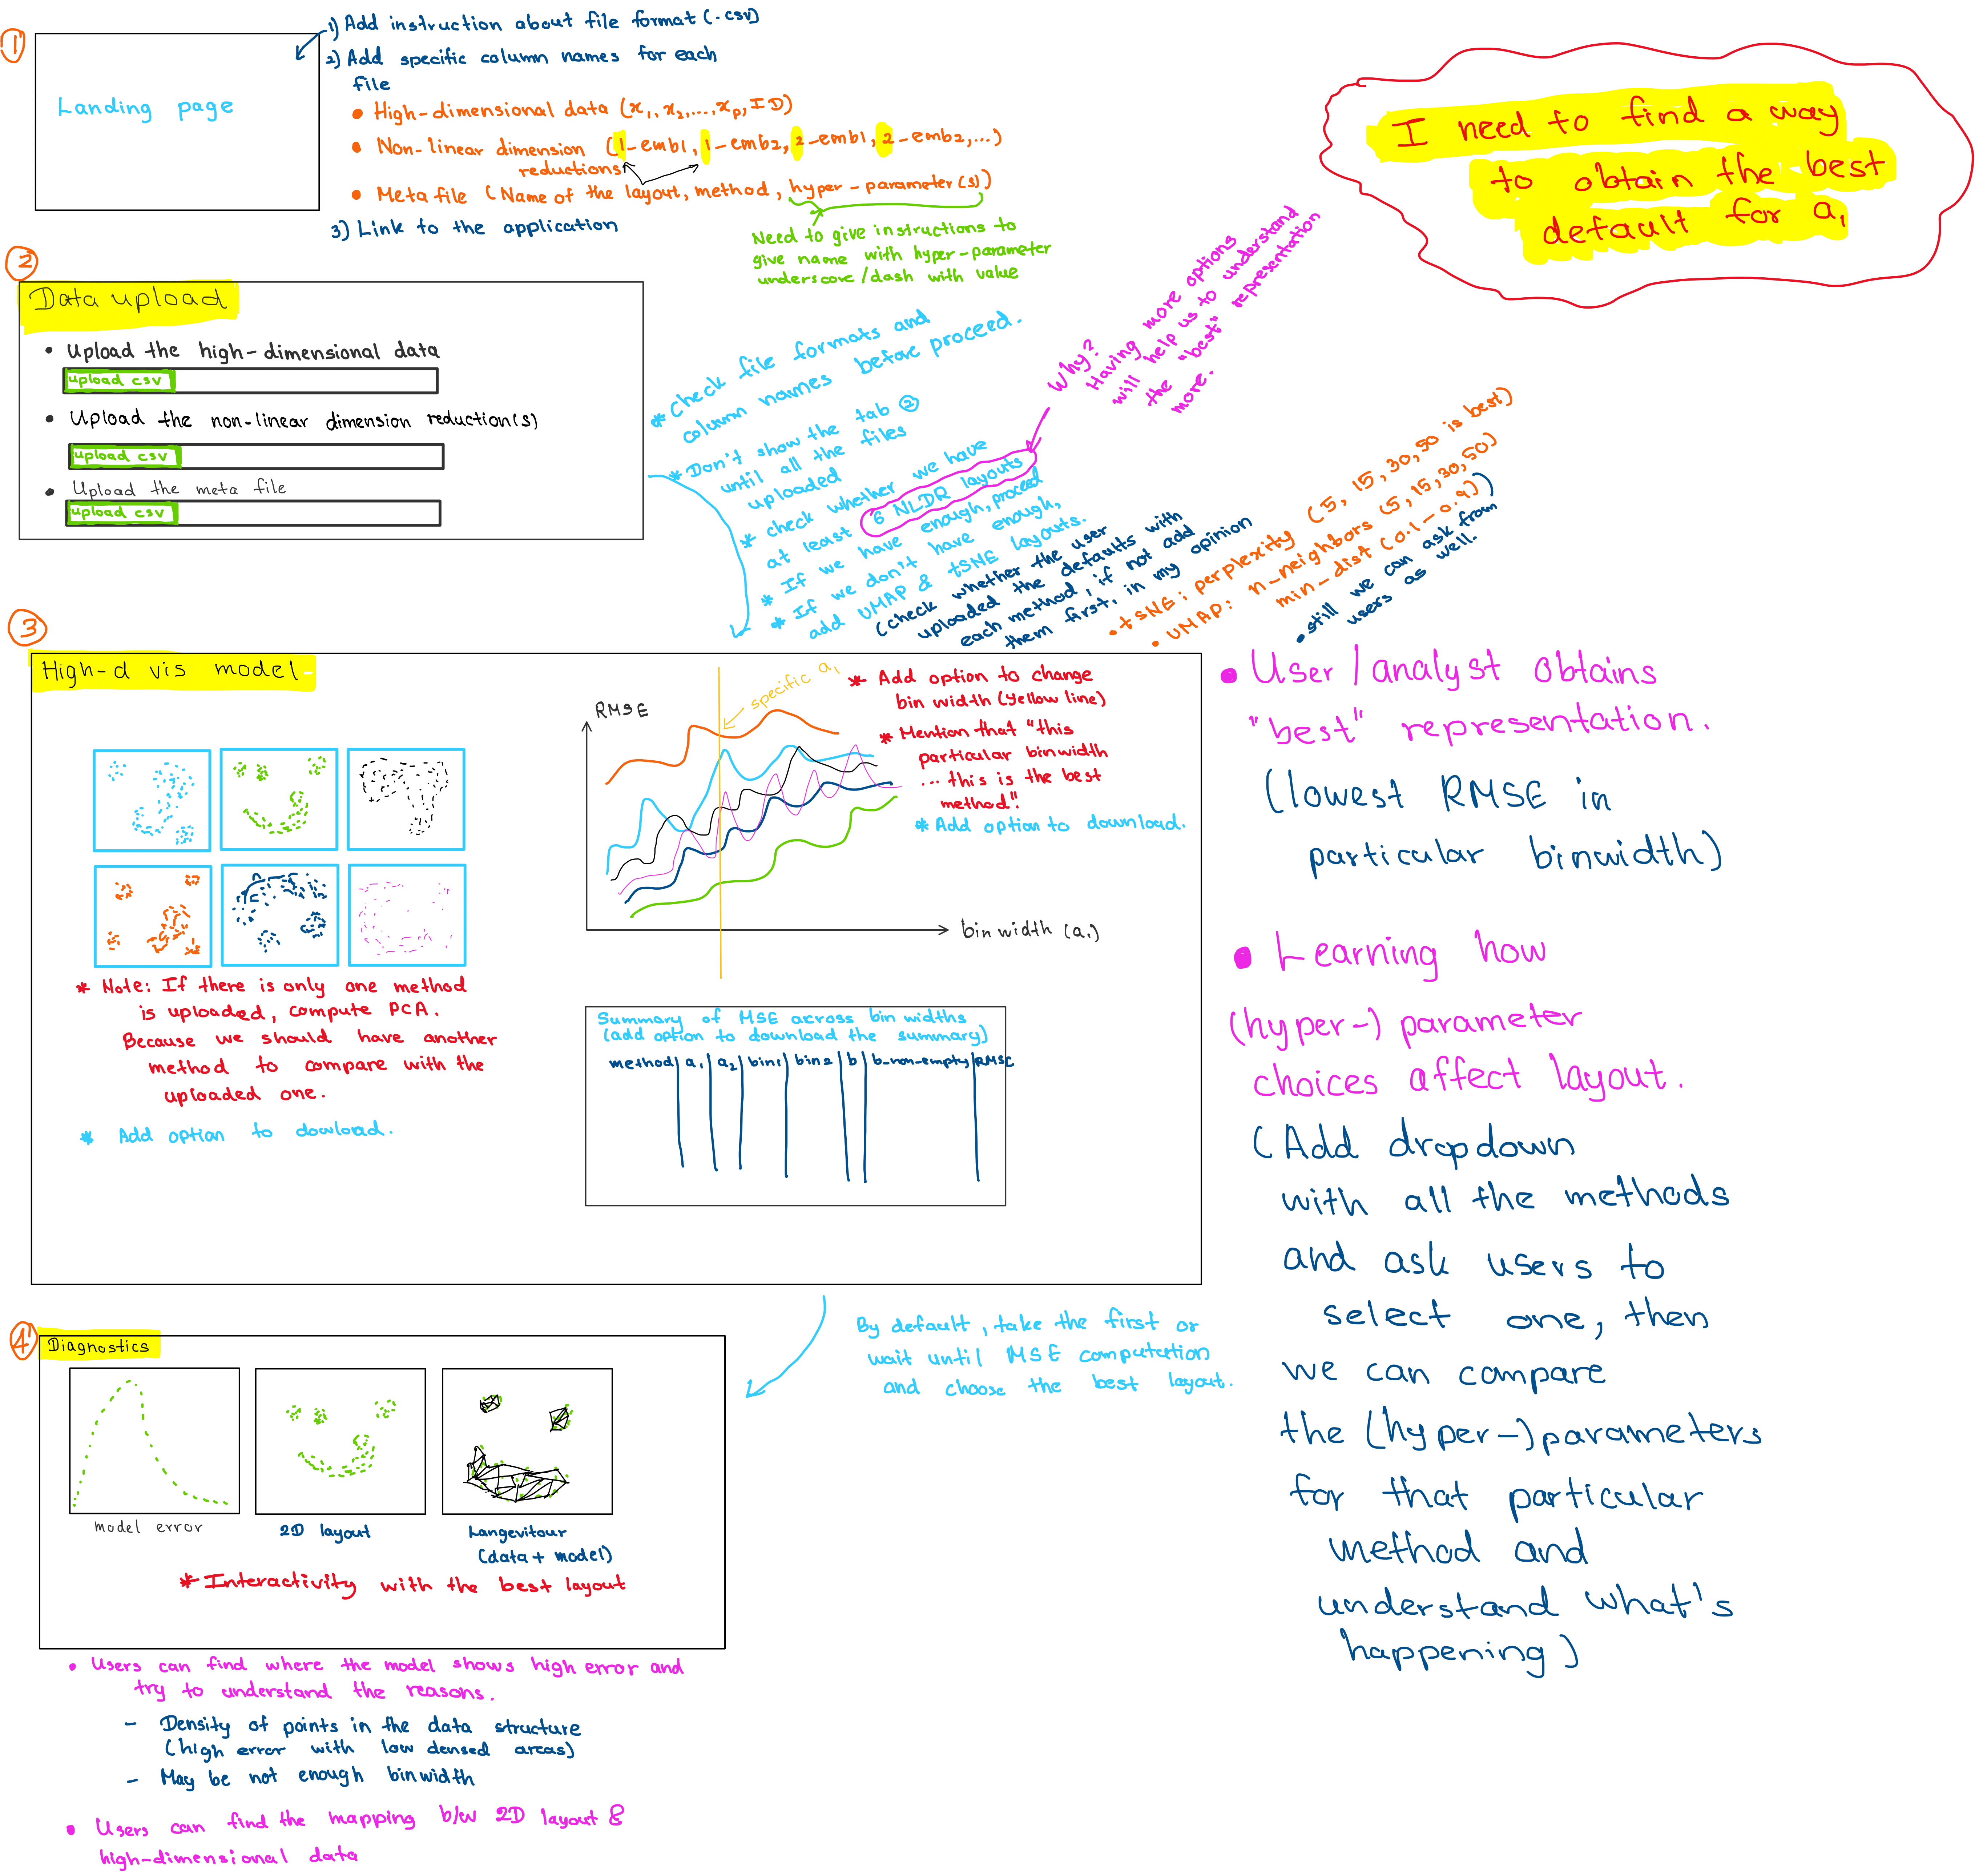 1
Landing page
1) Add instruction about file format (.csv)
2) Add specific column names for each
file
• High-dimensional data (x₁, x₂,..., xₚ, ID)
• Non-linear dimension (1-emb1, 1-emb2, 2-emb1, 2-emb2,...)
reductions
• Meta file (Name of the layout, method, hyper-parameter(s))
3) Link to the application
Need to give instructions to
give name with hyper-parameter
underscore/dash with value
I need to find a way
to obtain the best
default for a₁
2
Data upload
• Upload the high-dimensional data
upload csv
• Upload the non-linear dimension reduction(s)
upload csv
• Upload the meta file
upload csv
* Check file formats and
column names before proceed.
* Don't show the tab ②
until all the files
uploaded
* check whether we have
at least 6 NLDR layouts
* If we have enough, proceed
* If we don't have enough,
add UMAP & tSNE layouts.
(check whether the user
uploaded the defaults with
each method, if not add
them first, in my opinion
Why?
Having more options
will help us to understand
the "best" representation
more.
• tSNE: perplexity (5, 15, 30, 50 is best)
• UMAP: n_neighbors (5, 15, 30, 50)
min_dist (0.1 - 0.9))
• still we can ask from
users as well.
3
High-d vis model
* Note: If there is only one method
is uploaded, compute PCA.
Because we should have another
method to compare with the
uploaded one.
* Add option to dowload.
RMSE
specific a₁
binwidth (a₁)
* Add option to change
bin width (Yellow line)
* Mention that "this
particular binwidth
... this is the best
method".
* Add option to download.
Summary of MSE across bin widths
(add option to download the summary)
method a₁ a₂ bin1 bin2 b b_non-empty RMSE
• User/analyst obtains
"best" representation.
(lowest RMSE in
particular binwidth)
• Learning how
(hyper-) parameter
choices affect layout.
(Add dropdown
with all the methods
and ask users to
select one, then
we can compare
the (hyper-)parameters
for that particular
method and
understand what's
happening)
By default, take the first or
wait until MSE computation
and choose the best layout.
4
Diagnostics
model error
2D layout
Langevitour
(data + model)
* Interactivity with the best layout
• Users can find where the model shows high error and
try to understand the reasons.
- Density of points in the data structure
(high error with low densed areas)
- May be not enough binwidth
• Users can find the mapping b/w 2D layout &
high-dimensional data